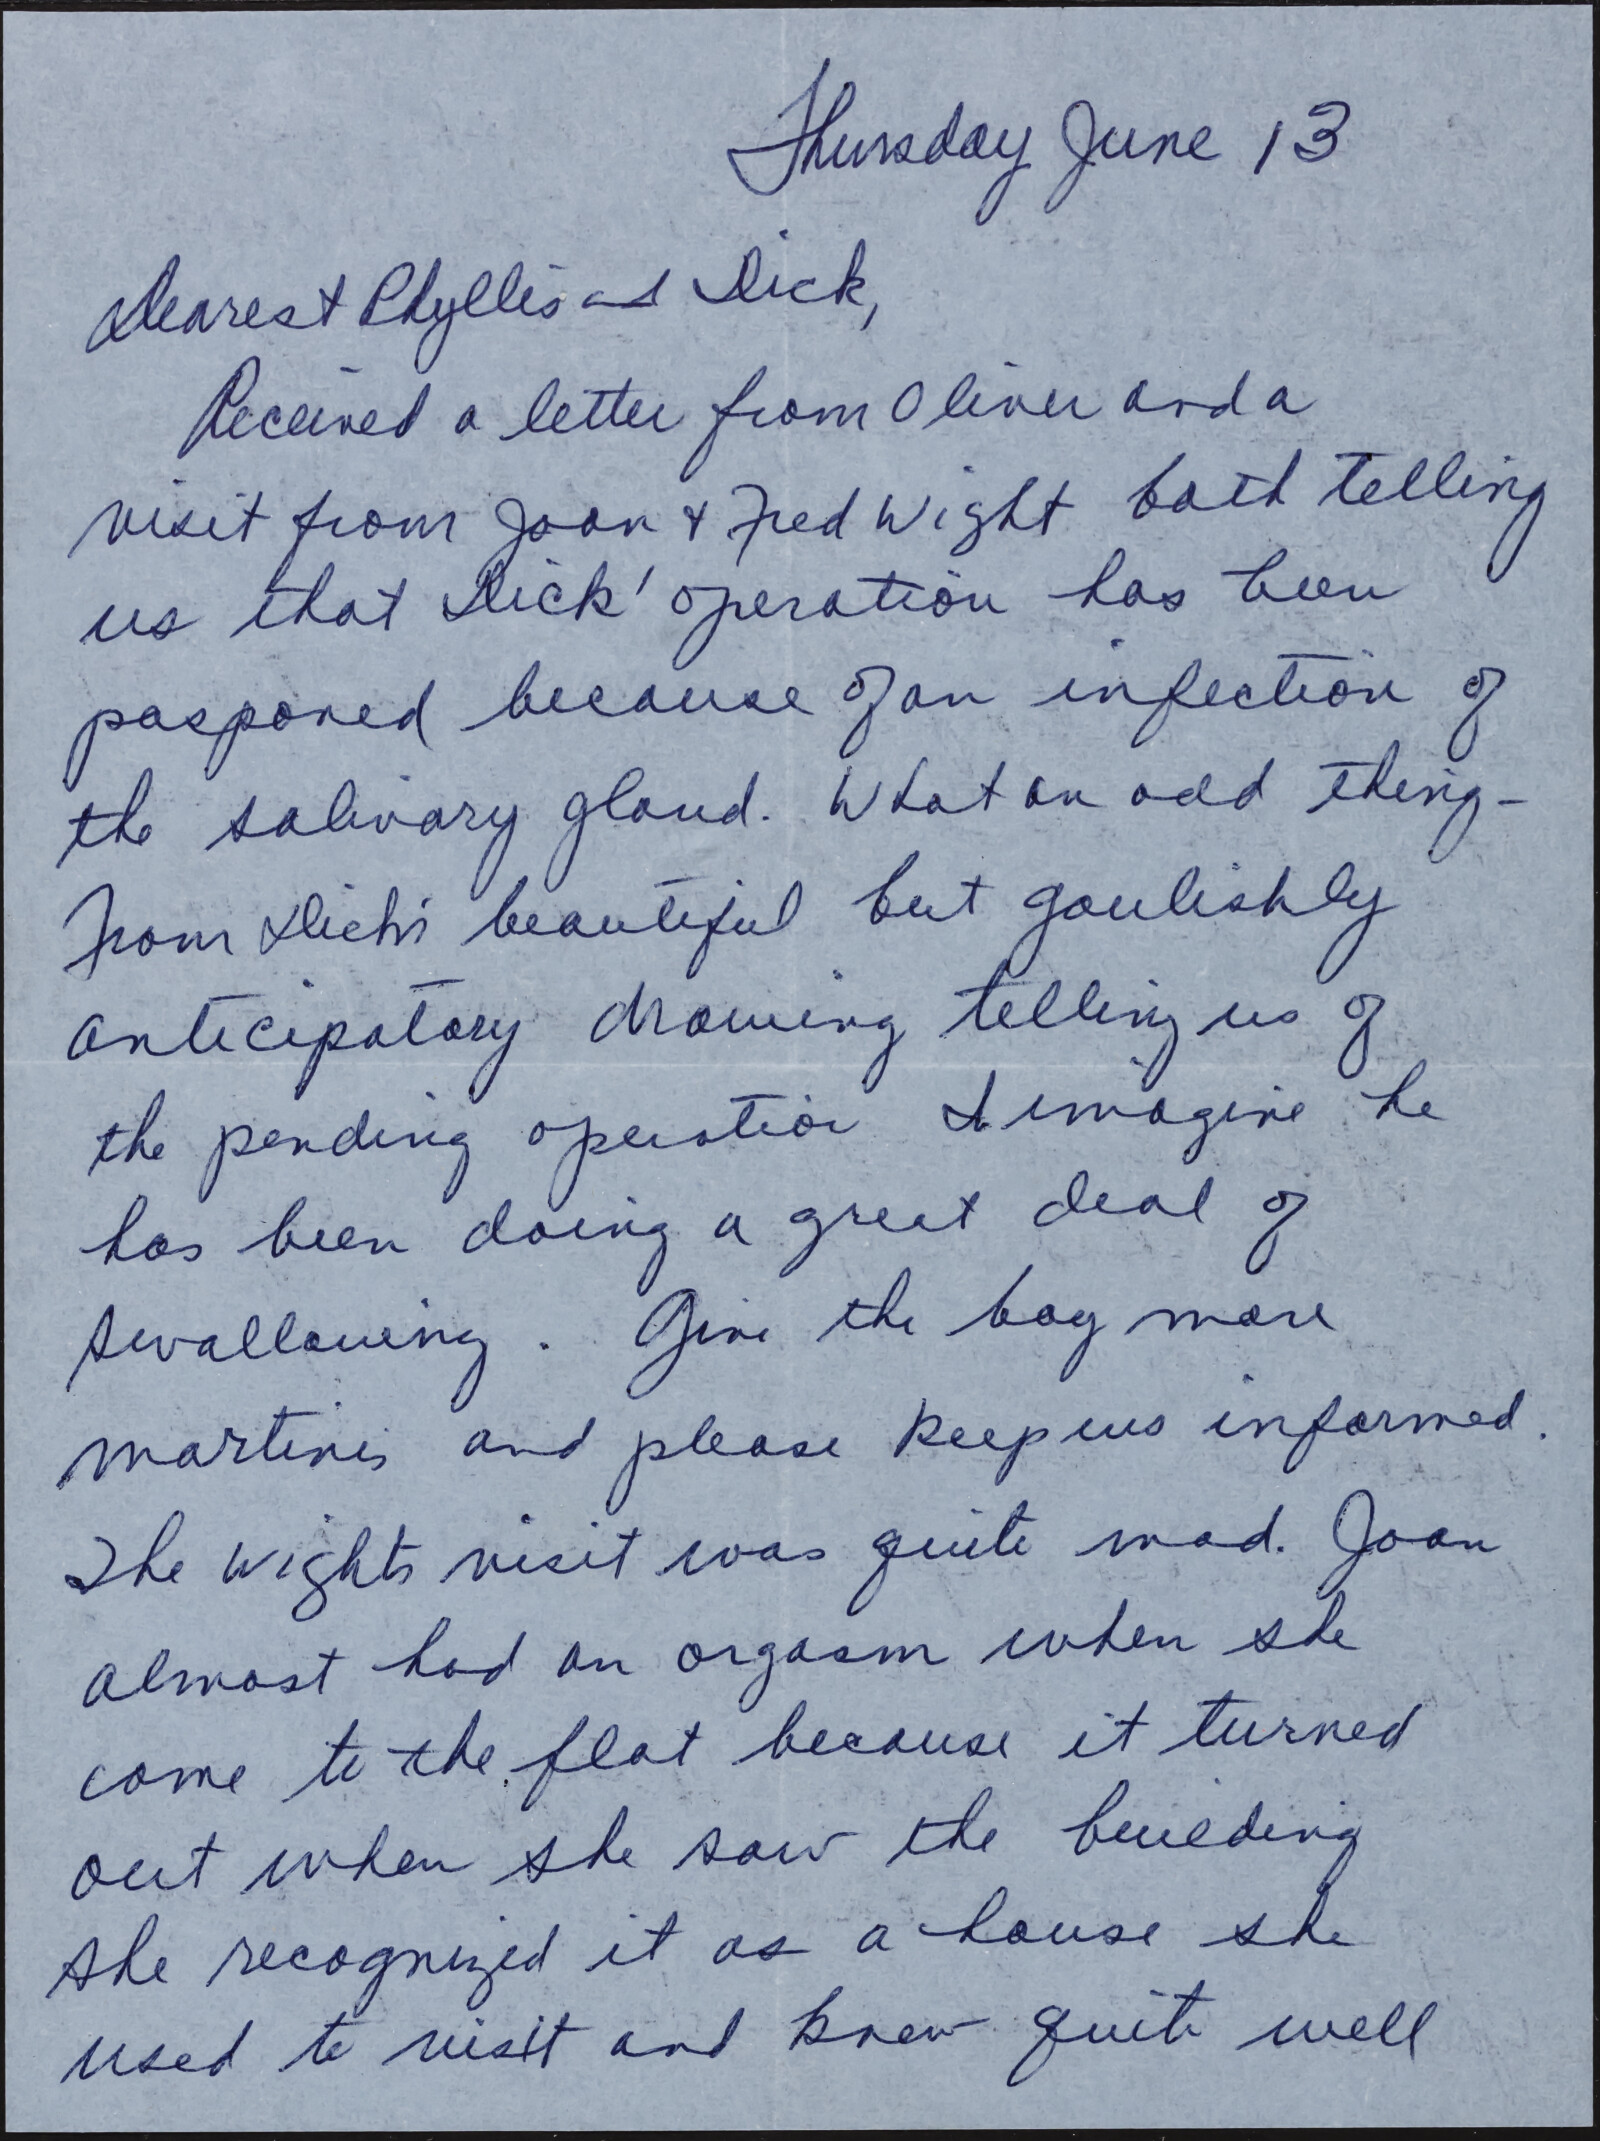 Thursday June 13
Dearest Phyllis and Dick,
Received a letter from Oliver and a
visit from Joan & Fred Wight both telling
us that Dick' operation has been
posponed because of an infection of
the salivary gland. What an odd thing -
From Dick's beautiful but goulishly
anticipatory drawing telling us of
the pending operation I imagine he
has been doing a great deal of
swallowing. Give the boy more
martinis and please keep us informed.
The Wights visit was quite mad. Joan
almost had an orgasm when she
come to the flat because it turned
out when she saw the building
she recognized it as a house she
used to visit and knew quite well